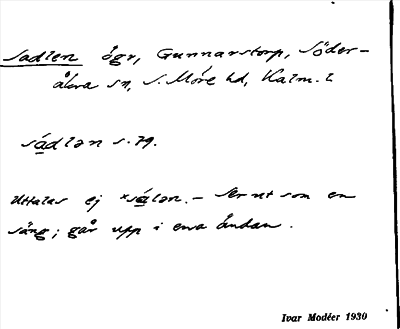 Sadlen ögr, Gunnarstorp, Söder-
åkra sn, S. Möre hd, Kalm. l.
sádlən s. 79.
Uttalas ej *sálən. – Ser ut som en
säng; går upp i ena ändan.
Ivar Modéer 1930